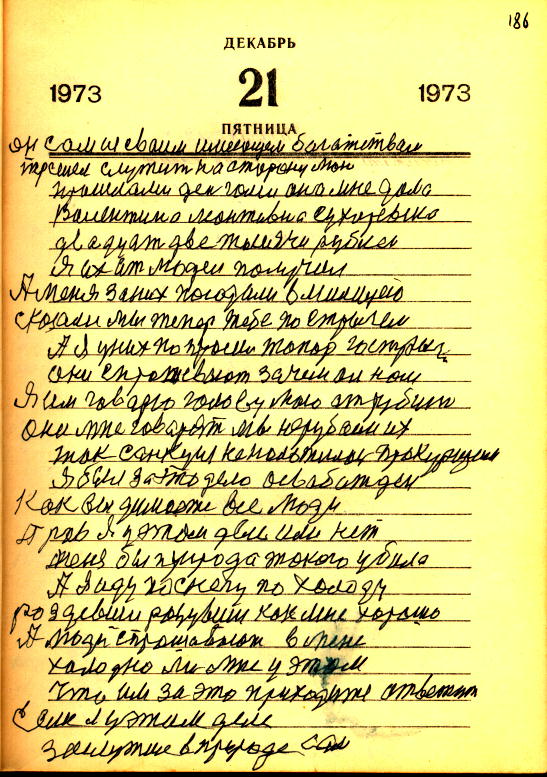 186
ДЕКАБРЬ
1973 21 1973
ПЯТНИЦА
он сам и своим имеющем богатствам
служит на сторону мои
прошлали ден голи она мне дала
Валентина леонтивна Сухоревска
двадцат две тысячи рублей
Я их от людей получил
А меня за них погодали в милицею
сказали мы тепер тебе пострычем
А я у них по просил топор гострый
они спрашевают зачем он нам
Я им говарю голову мою отрубит
они мне говарят мы нерубаем их
так санкции прокурци
Я был за это дело освабажден
Как вы думаете все люди
прав я у этом деле или нет
меня бы природа такого убила
А я иду по снегу по холоду
раздевши разувши как мне хорошо
А люди спрашавают в мене
халодно ли мне у этом
Что им за это приходится ответит
если я у этом деле
заслужие в природе сам